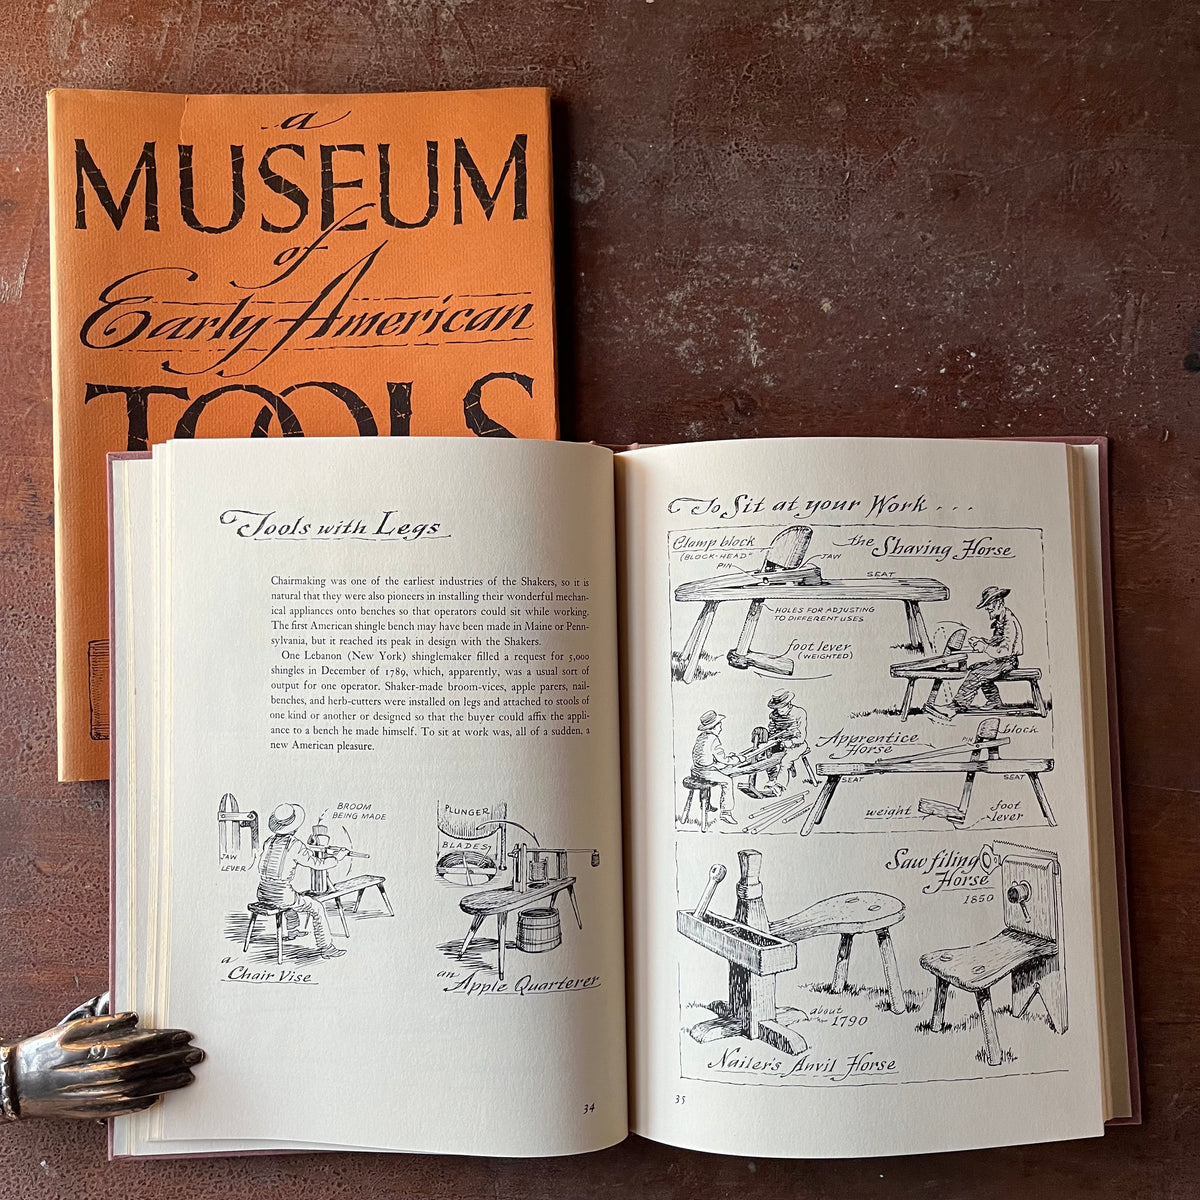 a
MUSEUM
of
Early American
TOOLS
Tools with Legs
Chairmaking was one of the earliest industries of the Shakers, so it is
natural that they were also pioneers in installing their wonderful mechan-
ical appliances onto benches so that operators could sit while working.
The first American shingle bench may have been made in Maine or Penn-
sylvania, but it reached its peak in design with the Shakers.
One Lebanon (New York) shinglemaker filled a request for 5,000
shingles in December of 1789, which, apparently, was a usual sort of
output for one operator. Shaker-made broom-vices, apple parers, nail-
benches, and herb-cutters were installed on legs and attached to stools of
one kind or another or designed so that the buyer could affix the appli-
ance to a bench he made himself. To sit at work was, all of a sudden, a
new American pleasure.
BROOM
BEING MADE
JAW
LEVER
a
Chair Vise
PLUNGER
BLADES
an
Apple Quarterer
34
To Sit at your Work . . .
Clamp block
(BLOCK-HEAD"
PIN
JAW
the Shaving Horse
SEAT
HOLES FOR ADJUSTING
TO DIFFERENT USES
foot lever
(WEIGHTED)
Apprentice
Horse
PIN
block
SEAT
SEAT
weight
foot
lever
Saw filing
Horse
1850
about
1790
Nailer's Anvil Horse
35